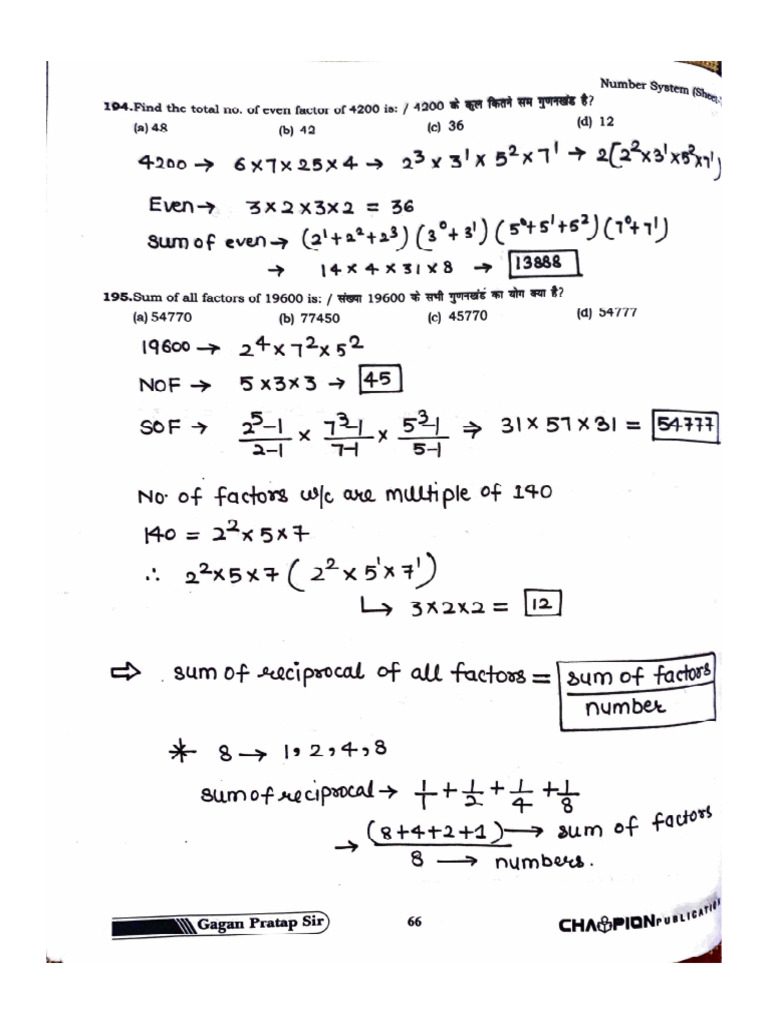 Number System (Sheet-
194.Find the total no. of even factor of 4200 is: / 4200 के कूल कितने सम गुणनखंड है?
(a) 48 (b) 42 (c) 36 (d) 12
4200 → 6×7×25×4 → 2³ × 3¹ × 5² × 7¹ → 2(2²×3¹×5²×7¹)
Even → 3×2×3×2 = 36
Sum of even → (2¹+2²+2³) (3⁰+3¹) (5⁰+5¹+5²) (7⁰+7¹)
→ 14 × 4 × 31 × 8 → 13888
195.Sum of all factors of 19600 is: / संख्या 19600 के सभी गुणनखंडं का योग क्या है?
(a) 54770 (b) 77450 (c) 45770 (d) 54777
19600 → 2⁴ × 7² × 5²
NOF → 5×3×3 → 45
SOF → 2⁵-1/2-1 × 7³-1/7-1 × 5³-1/5-1 ⇒ 31 × 57 × 31 = 54777
No. of factors w/c are multiple of 140
140 = 2² × 5 × 7
∴ 2²×5×7 (2² × 5¹ × 7¹)
↳ 3×2×2 = 12
⇨ sum of reciprocal of all factors = sum of factors/number
* 8 → 1, 2, 4, 8
sum of reciprocal → 1/1 + 1/2 + 1/4 + 1/8
→ (8+4+2+1) → sum of factors
8 → numbers.
Gagan Pratap Sir 66 CHAMPION PUBLICATION